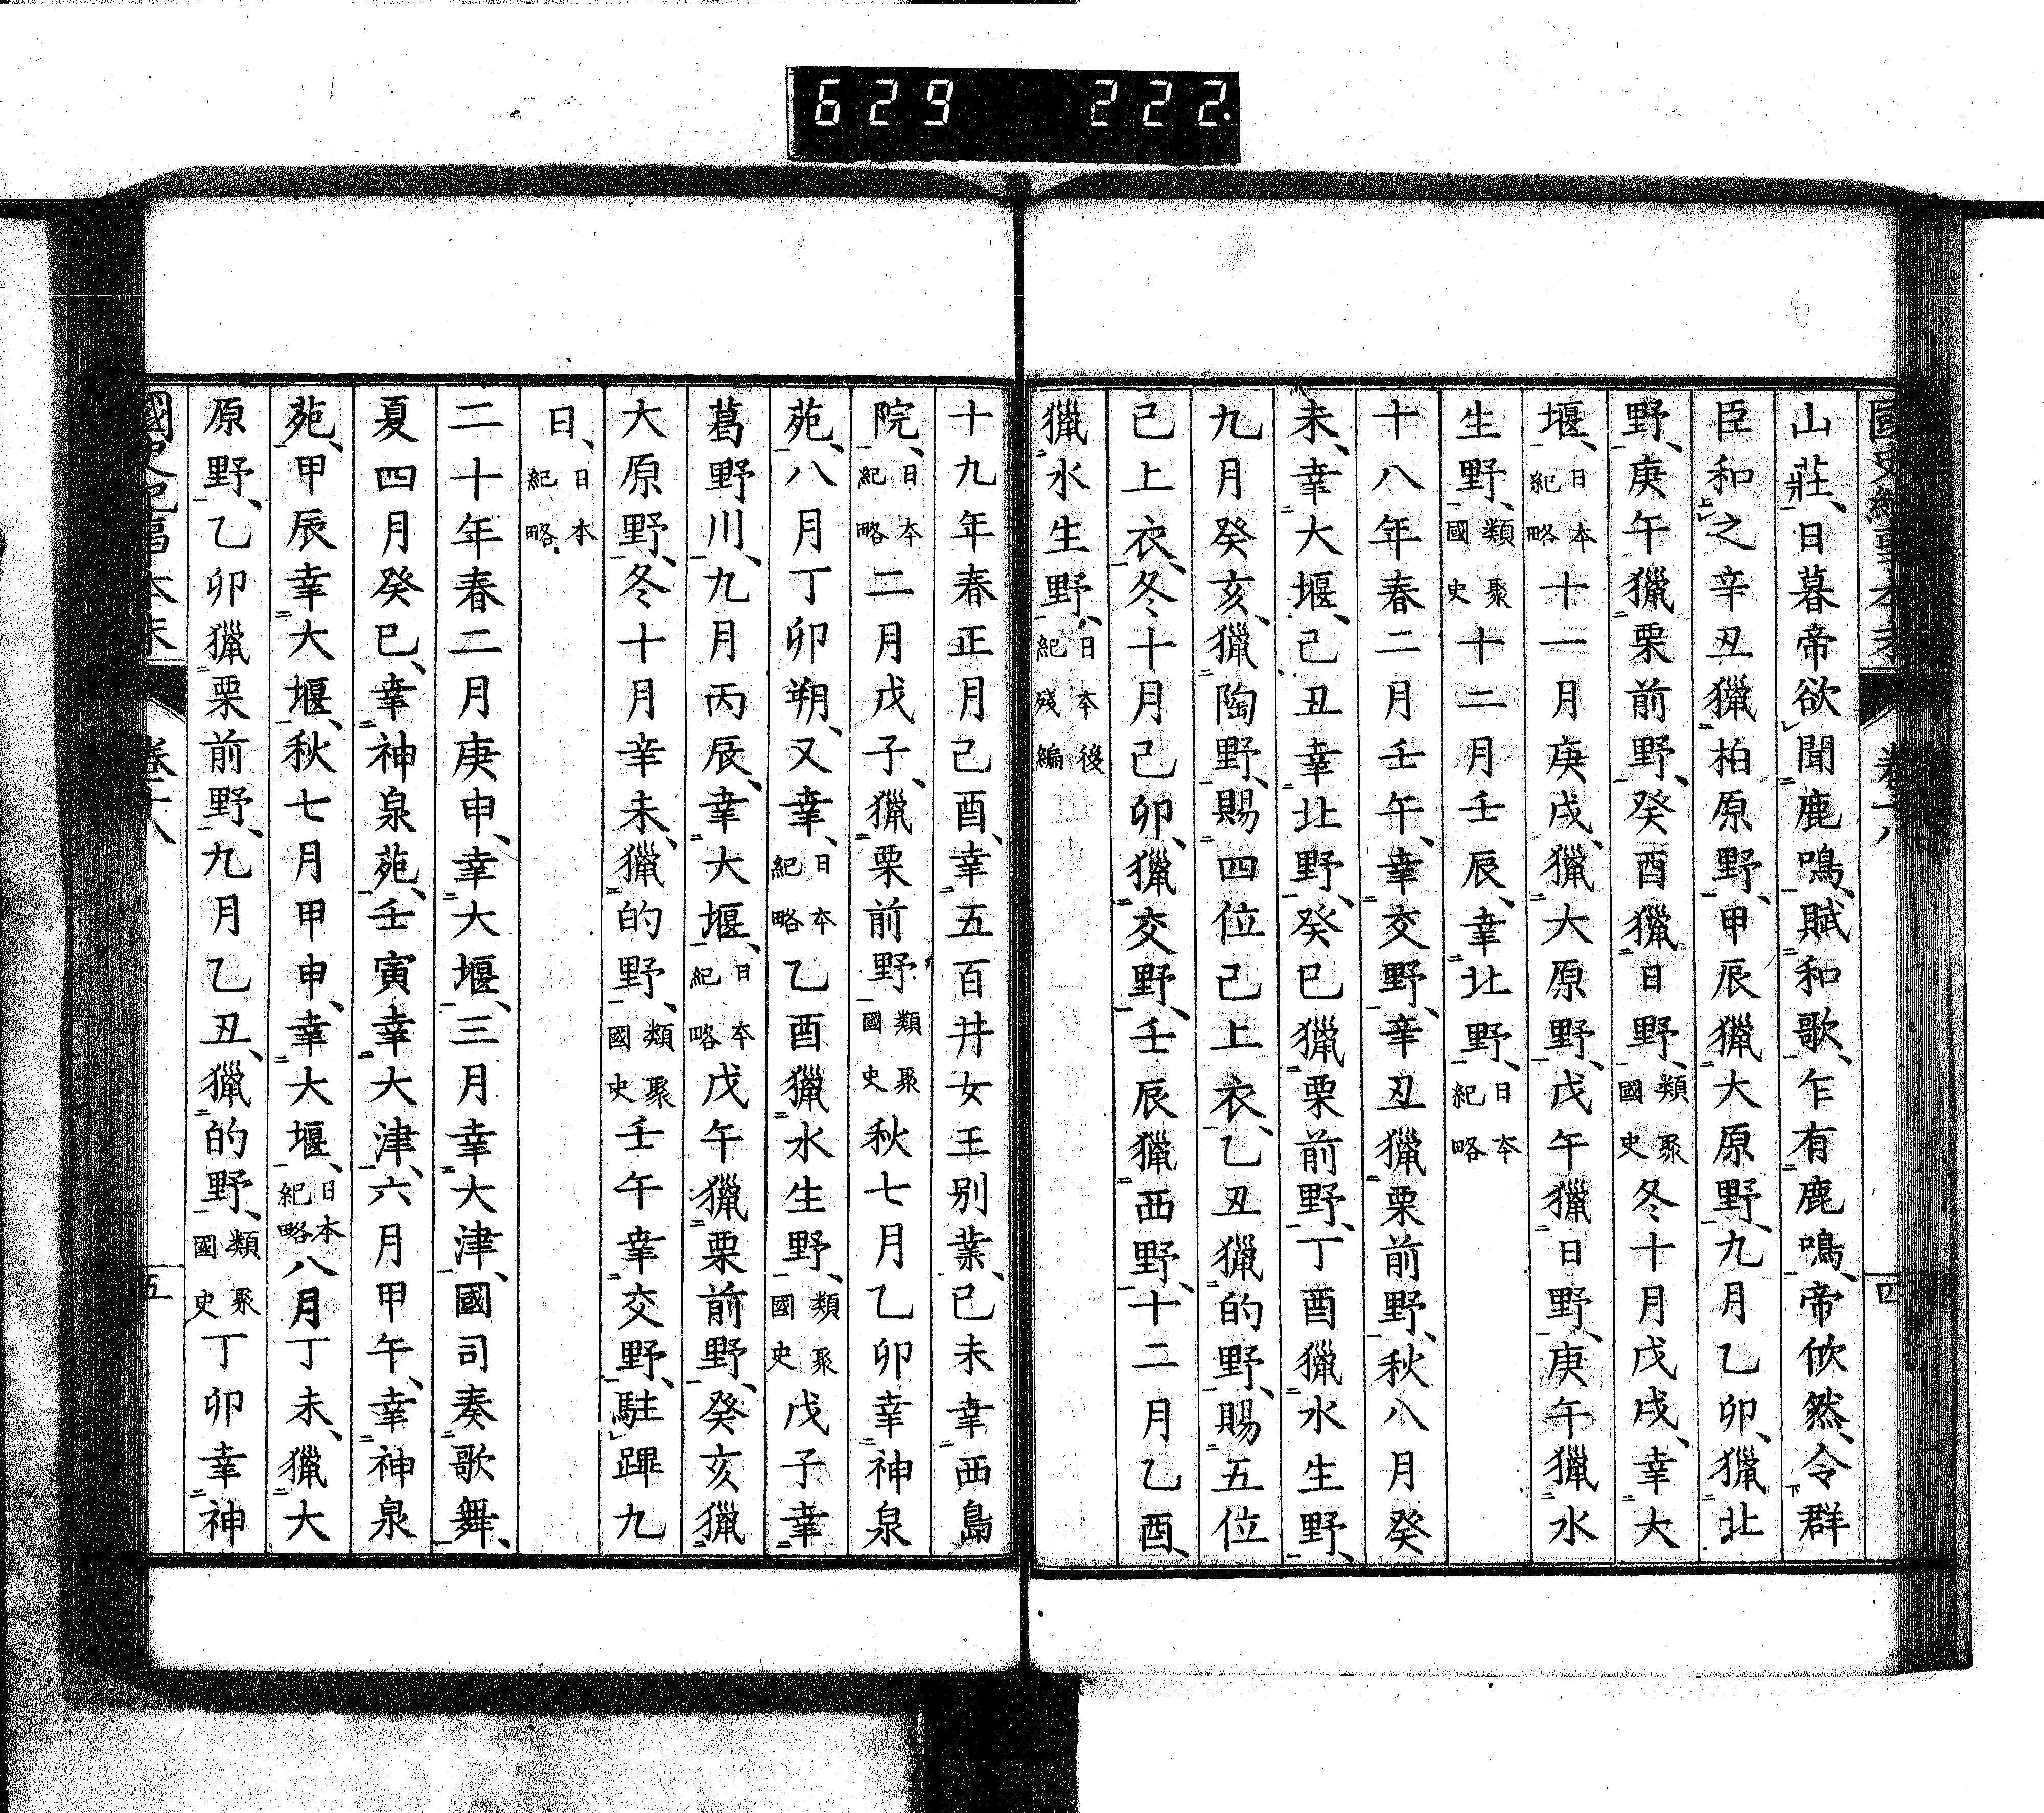 629 222.
國史紀事本末 卷十八 四
山莊、日暮帝欲聞鹿鳴、賦和歌、乍有鹿鳴、帝欣然、令群
臣和之辛丑獵柏原野、甲辰獵大原野、九月乙卯、獵北
野、庚午獵栗前野、癸酉獵日野、類聚國史冬十月戊戌、幸大
堰、日本紀略十一月庚戌、獵大原野、戊午獵日野、庚午獵水
生野、類聚國史十二月壬辰、幸北野、日本紀略
十八年春二月壬午、幸交野、辛丑獵栗前野、秋八月癸
未、幸大堰、己丑幸北野、癸巳獵栗前野、丁酉獵水生野、
九月癸亥、獵陶野、賜四位已上衣、乙丑獵的野、賜五位
已上衣、冬十月己卯、獵交野、壬辰獵西野、十二月乙酉、
獵水生野、日本後紀殘編
十九年春正月己酉、幸五百井女王別業、己未幸西島
院、日本紀略二月戊子、獵栗前野、類聚國史秋七月乙卯幸神泉
苑、八月丁卯朔、又幸、日本紀略乙酉獵水生野、類聚國史戊子幸
葛野川、九月丙辰、幸大堰、日本紀略戊午獵栗前野、癸亥獵
大原野、冬十月辛未、獵的野、類聚國史壬午幸交野、駐蹕九
日、日本紀略
二十年春二月庚申、幸大堰、三月幸大津、國司奏歌舞、
夏四月癸巳、幸神泉苑、壬寅幸大津、六月甲午、幸神泉
苑、甲辰幸大堰、秋七月甲申、幸大堰、日本紀略八月丁未、獵大
原野、乙卯獵栗前野、九月乙丑、獵的野、類聚國史丁卯幸神
國史紀事本末 卷十八 五